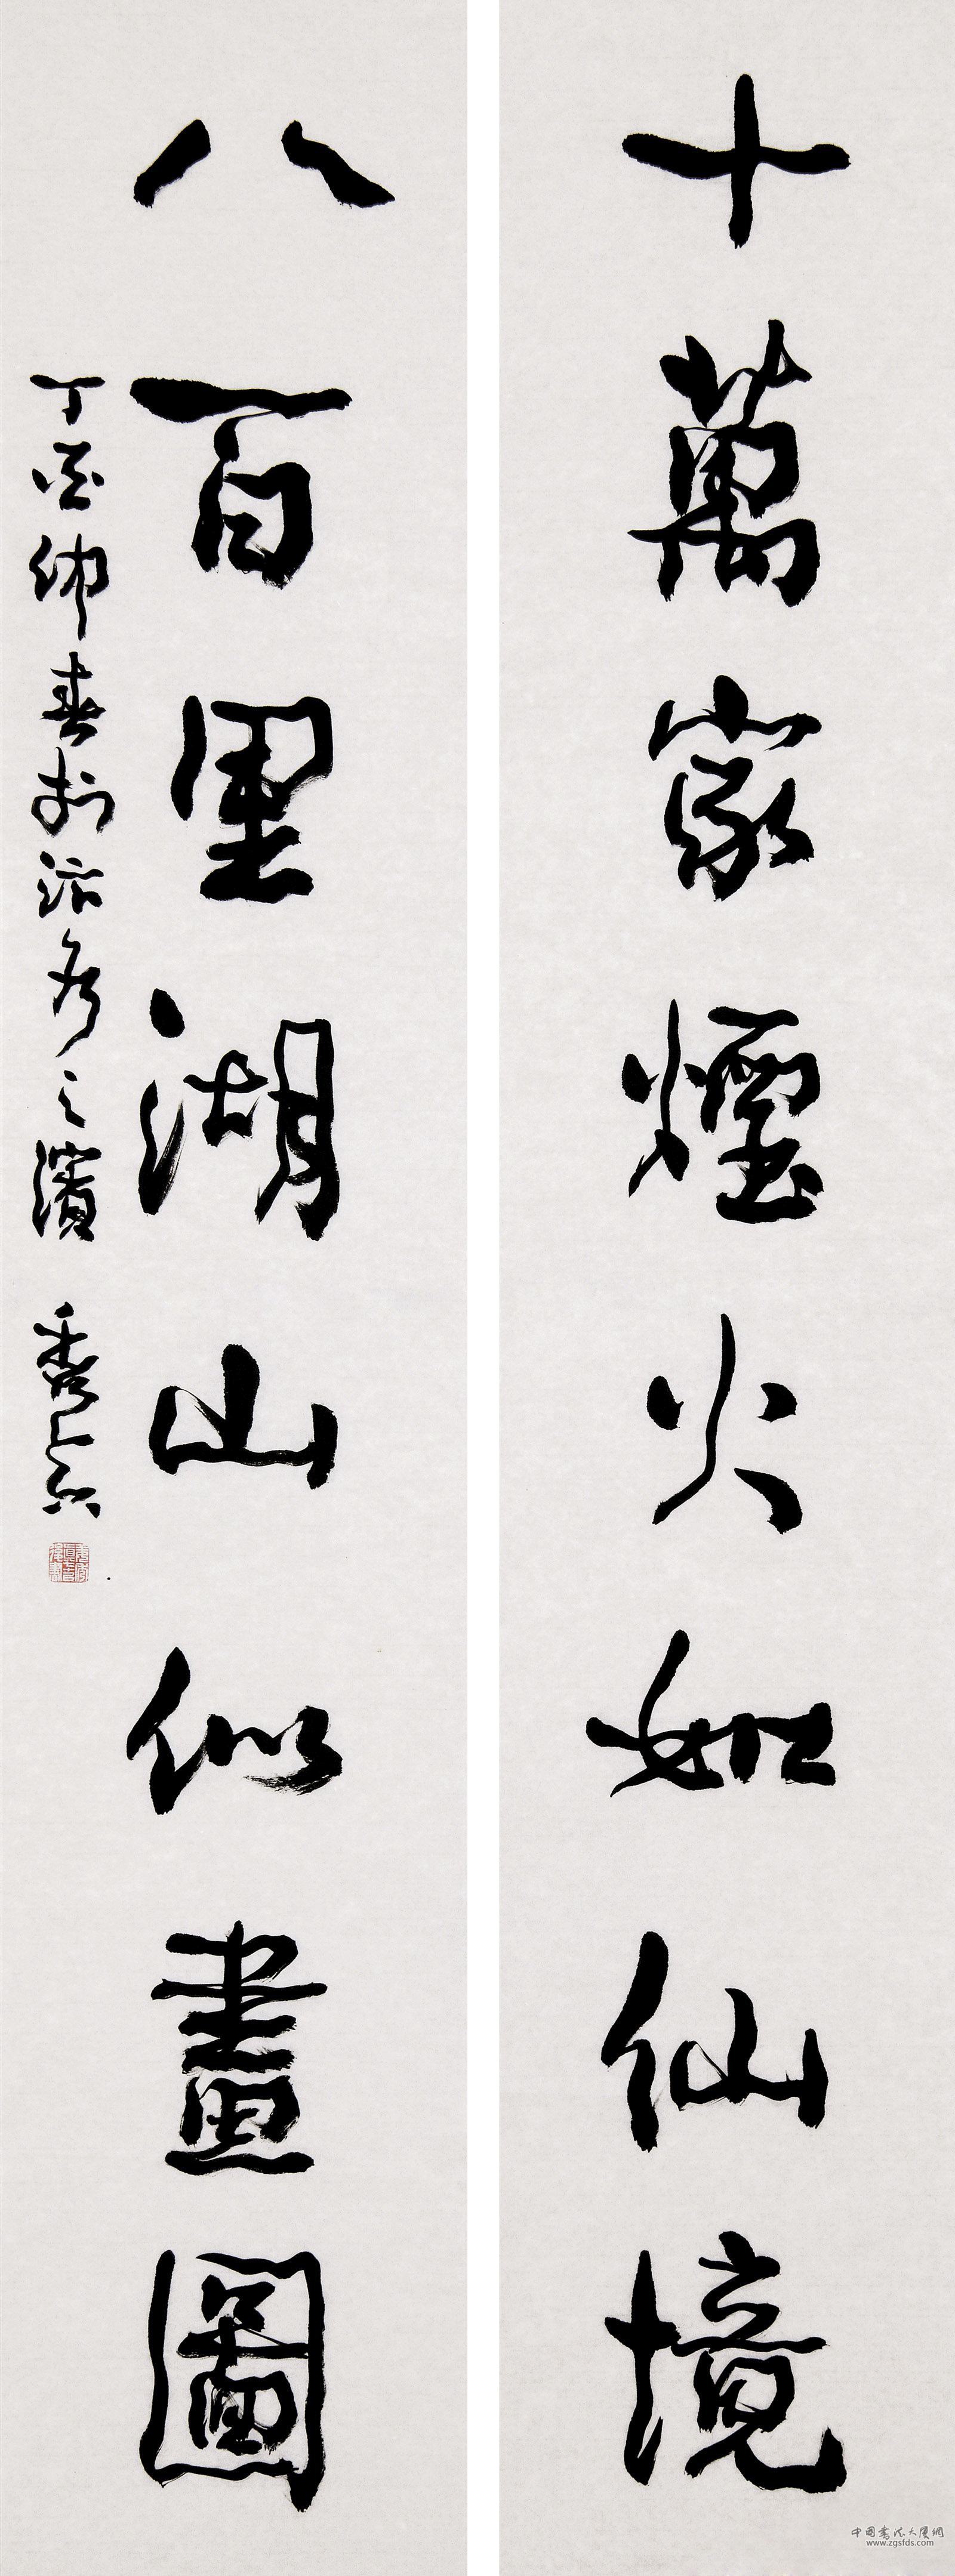 十萬家煙火如仙境
八百里湖山似畫圖
丁酉仲春於法名之濱
中國書法大廈網
www.zgsfds.com